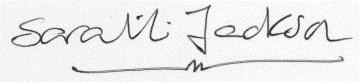 Sarah Jackson